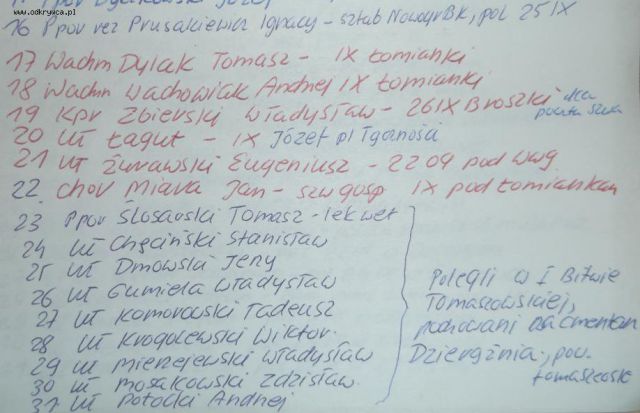 www.odkrywca.pl
16 Ppor rez Prusakiewicz Ignacy - sztab NowogrBK, pol 25 IX
17 Wachm Dylak Tomasz - IX Łomianki
18 Wachm Wachowiak Andrzej IX Łomianki
19 Kpr Zbierski Władysław - 26 IX Broszki dca
pocztu szwa
20 uł Łagut - IX Józef pl
21 uł Żurawski Eugeniusz - 22 09 pod wwg
22. chor Miara Jan - szw gosp IX pod Łomiankam
23 Ppor Ślosarski Tomasz - lek wet
24 uł Chęciński Stanisław
25 uł Dmowski Jerzy
26 uł Gumiela Władysław
27 uł Komorowski Tadeusz
28 uł Krogolewski Wiktor.
29 uł Mierzejewski Władysław
30 uł Mosakowski Zdzisław.
31 uł Potocki Andrzej
Polegli w I Bitwie
Tomaszowskiej,
pochowani na cmentarzu
Dzierążnia., pow.
tomaszowski